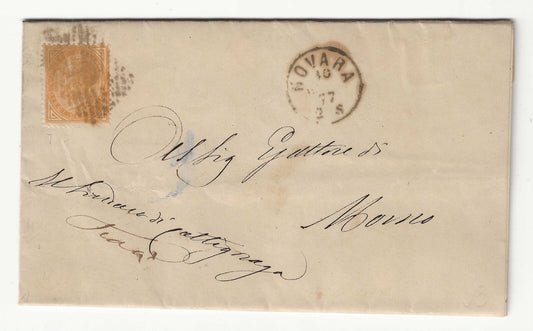 NOVARA
10
77
S
Al Sig Esattore di
Momo
Il Sindaco di Caltignaga